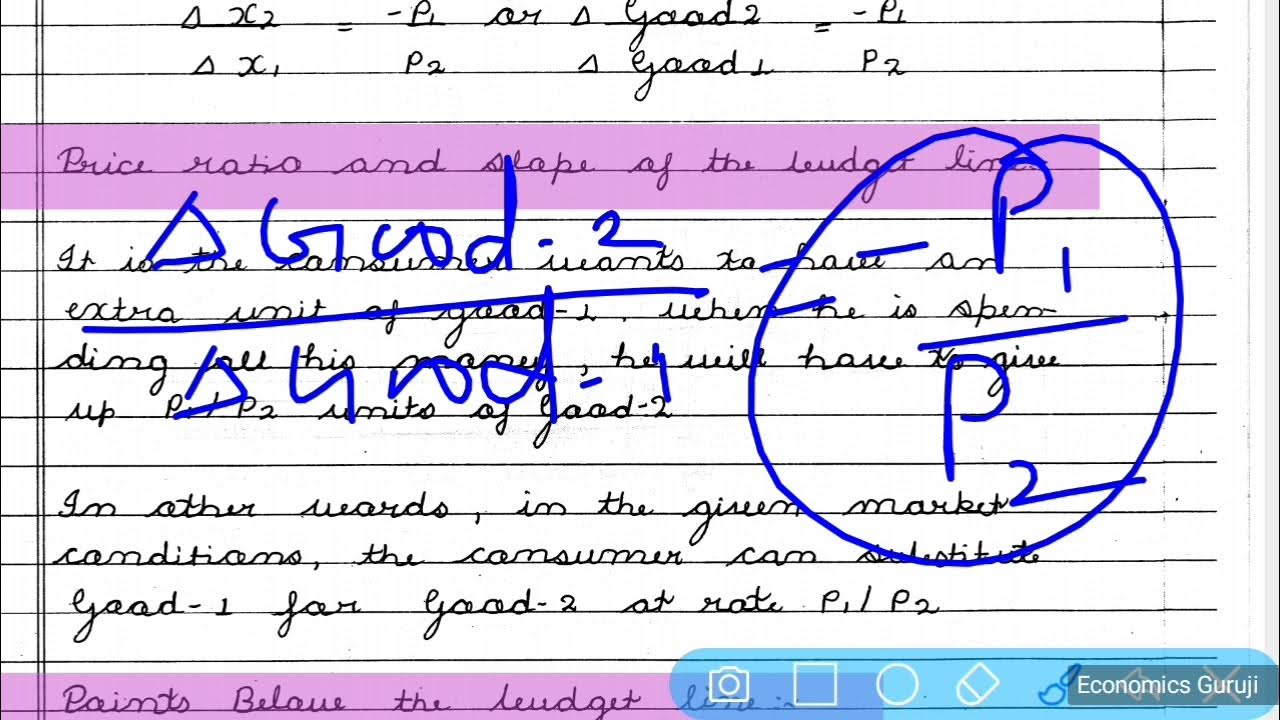 Δ x2 = -P1 or Δ Good2 = -P1
Δ x1 P2 Δ Good1 P2
Price ratio and slope of the budget line
Δ Good-2 = -P1
Δ Good-1 P2
It is the consumer wants to have an
extra unit of good-1. when he is spen-
ding all his money, he will have to give
up P1/P2 units of Good-2
In other words, in the given market
conditions, the consumer can substitute
Good-1 for Good-2 at rate P1/P2
Points Below the budget line :-
Economics Guruji